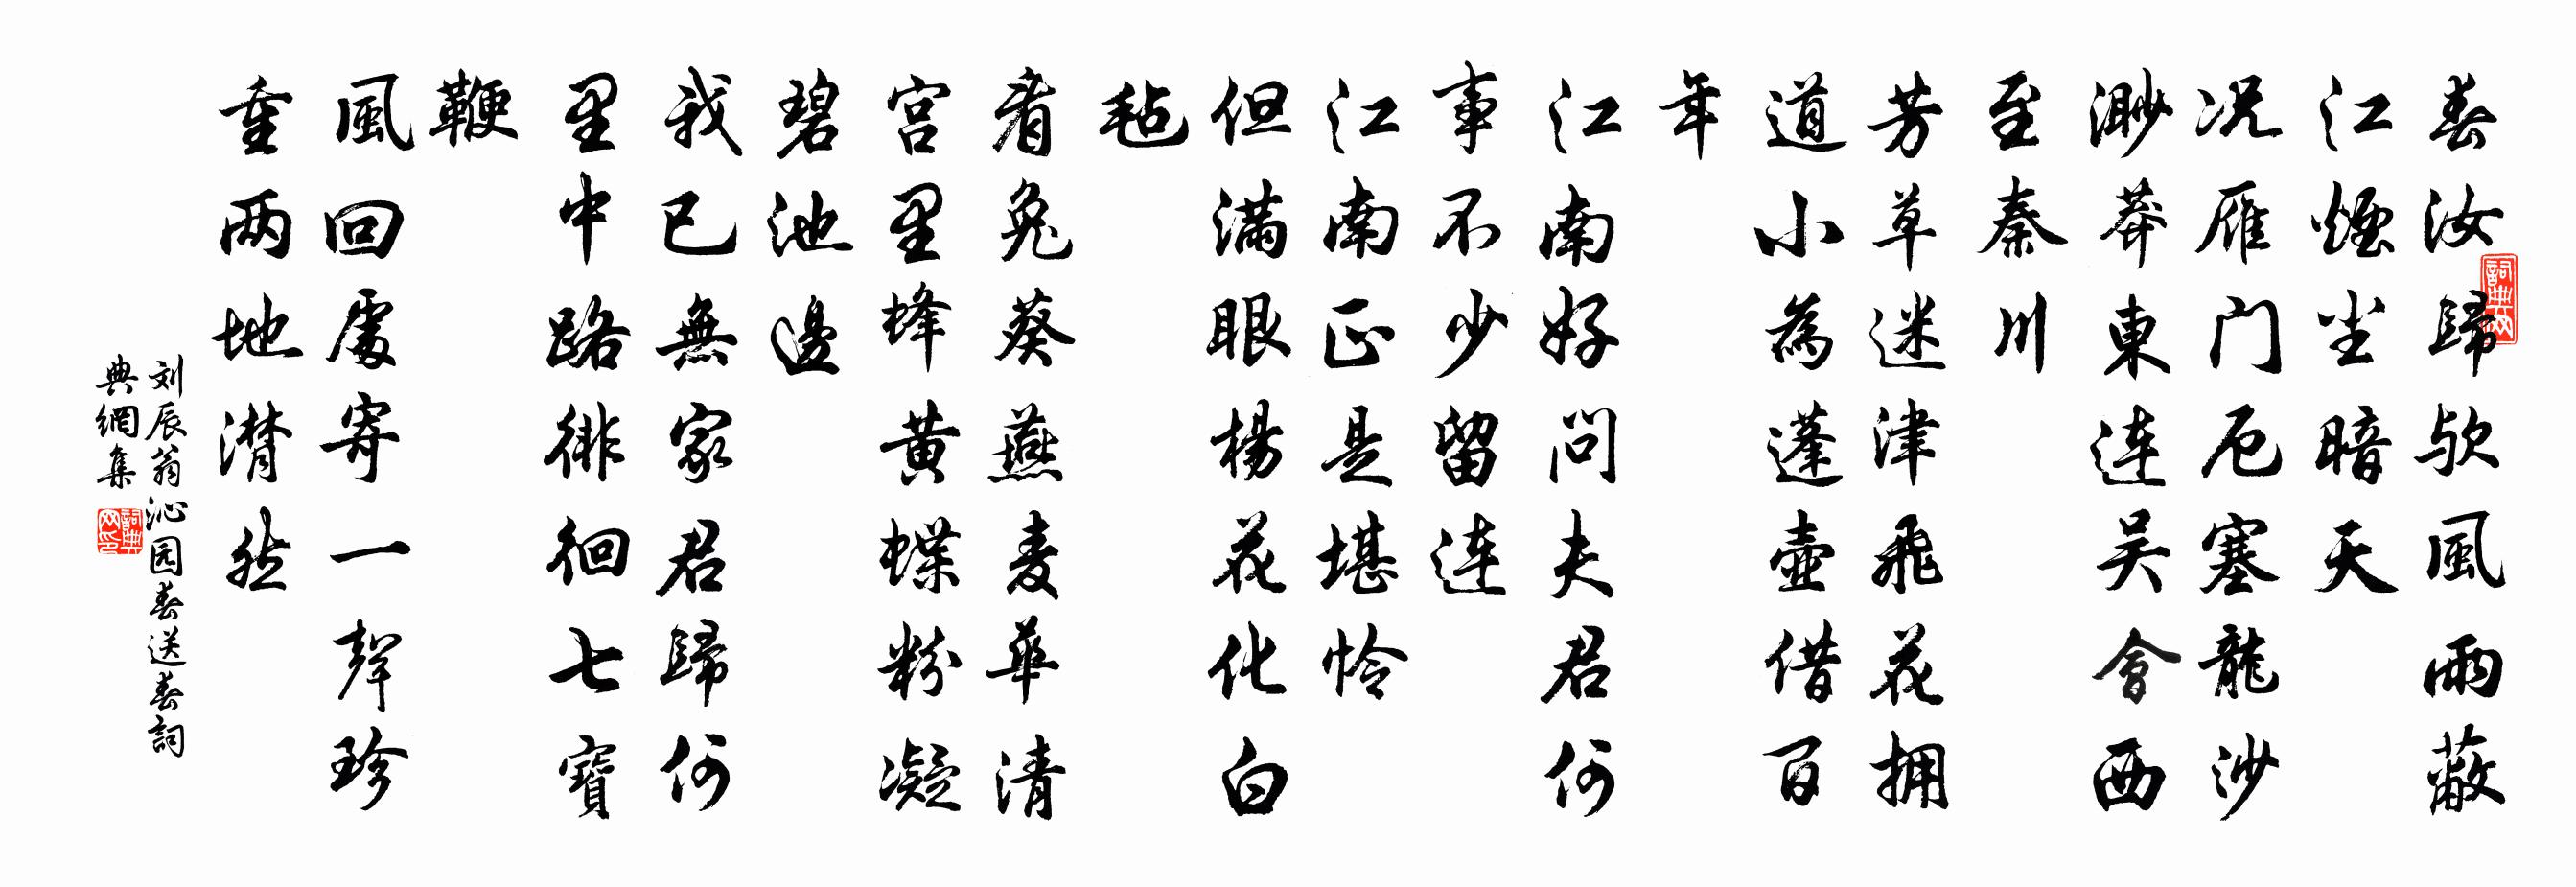 春汝歸歟風雨蔽
江煙尘暗天
况雁门厄塞龍沙
渺莽東连吴會西
至秦川
芳草迷津飛花拥
道小為蓬壺借百
年
江南好问夫君何
事不少留连
江南正是堪怜
但满眼楊花化白
毡
看兔葵燕麦華清
宫里蜂黄蝶粉凝
碧池邊
我已無家君歸何
里中路徘徊七寶
鞭
風回處寄一聲珍
重两地潸然
刘辰翁沁园春送春詞
典網集